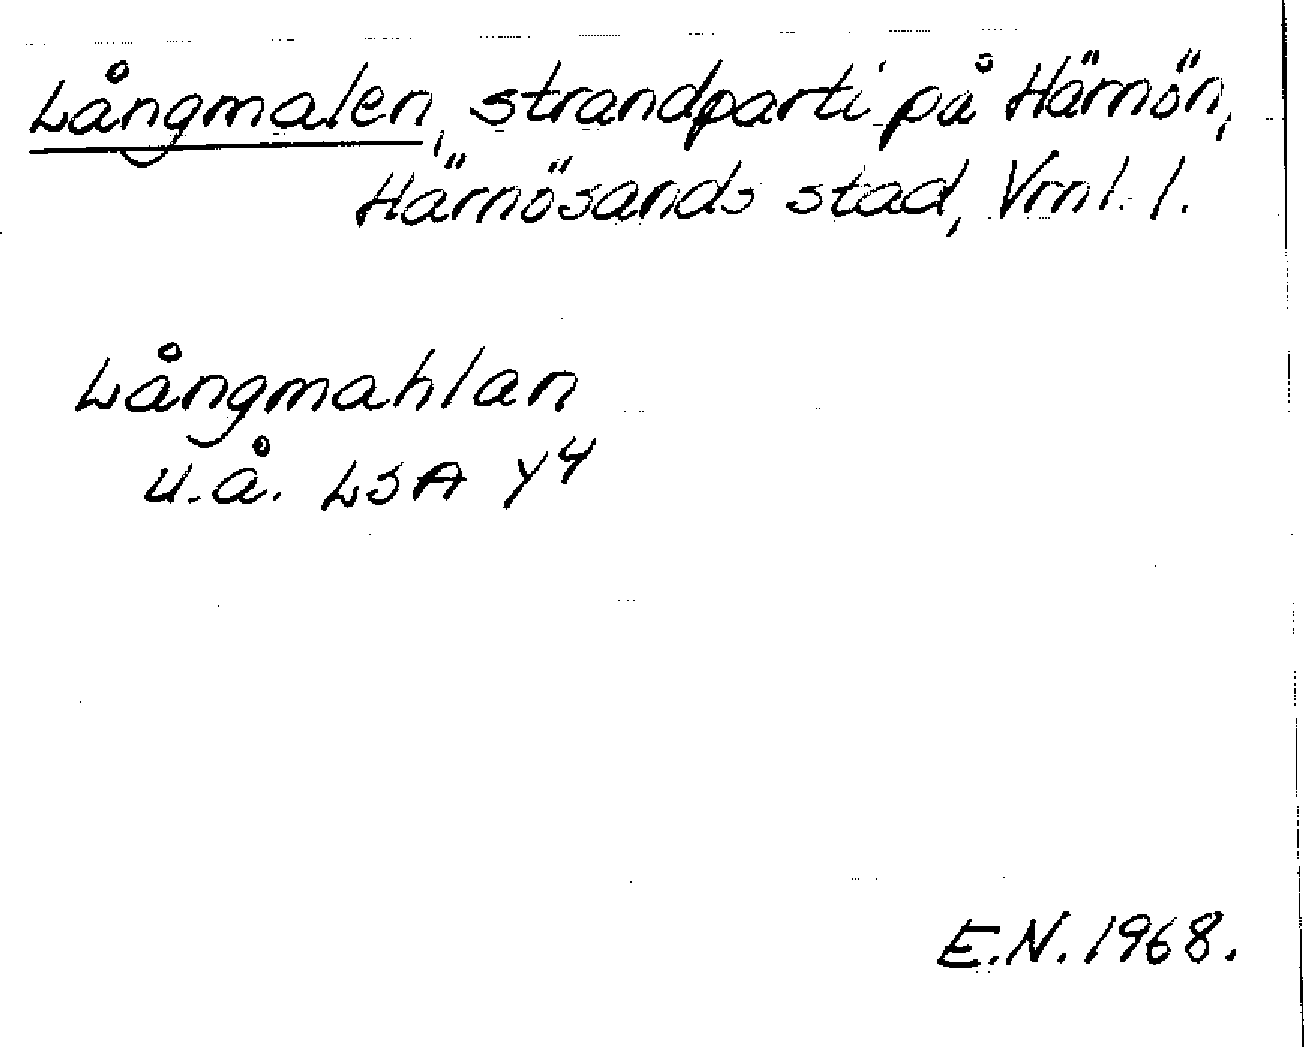 Långmalen, strandparti på Härnön,
Härnösands stad, Vrnl. l.
Långmahlan
u.å. LSA Y4
E.N. 1968.